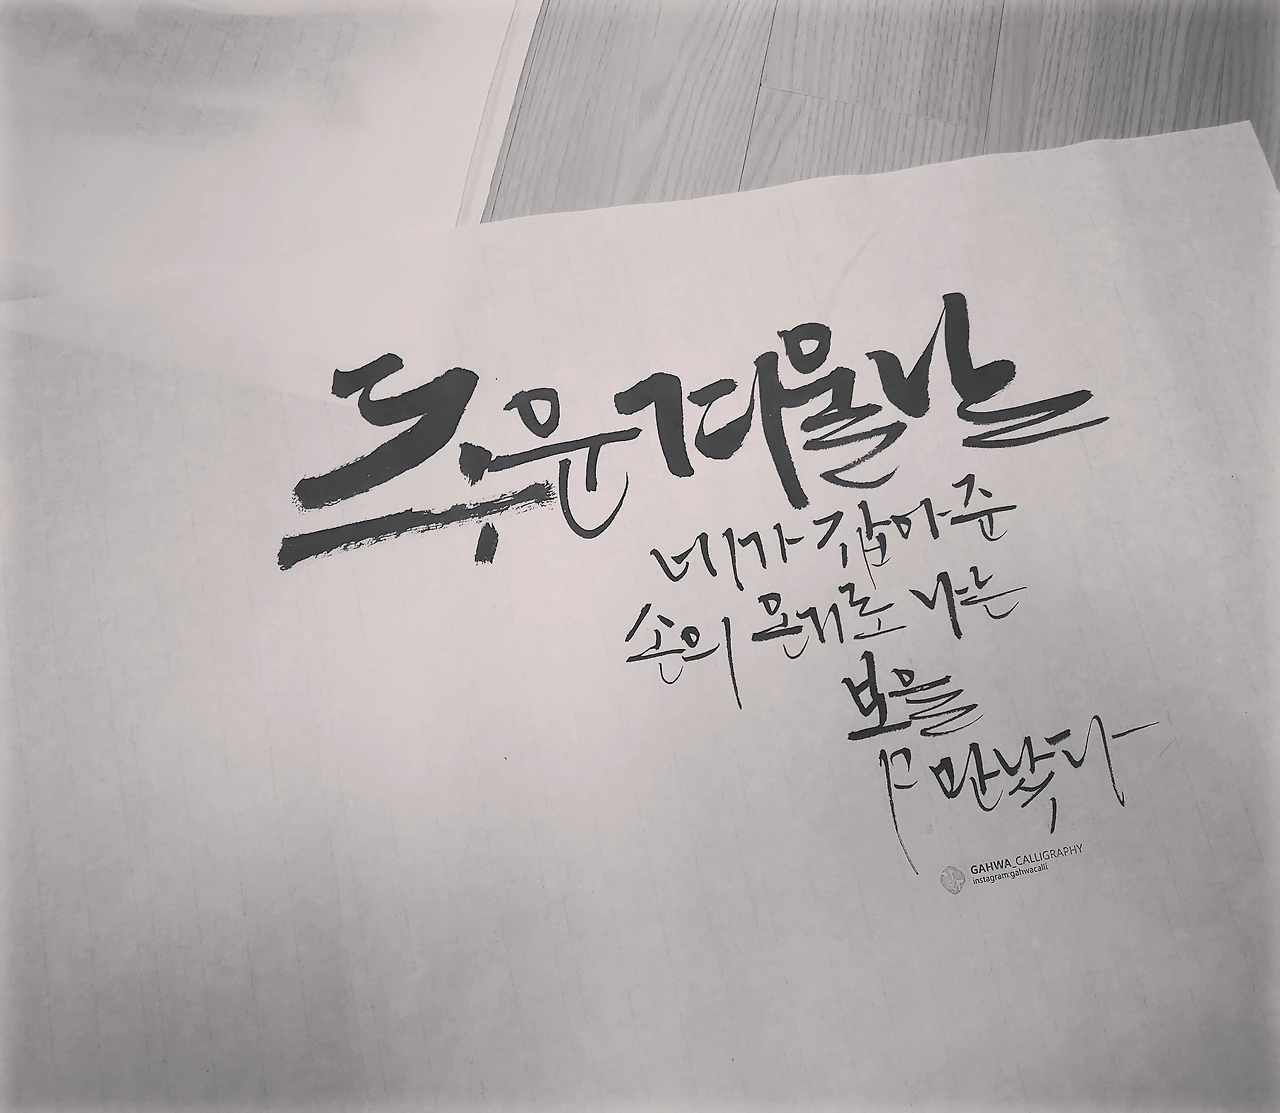 추운 겨울날
네가 잡아준
손의 온기로 나는
봄을
만났다
GAHWA_CALLIGRAPHY
instagram:gahwacalli